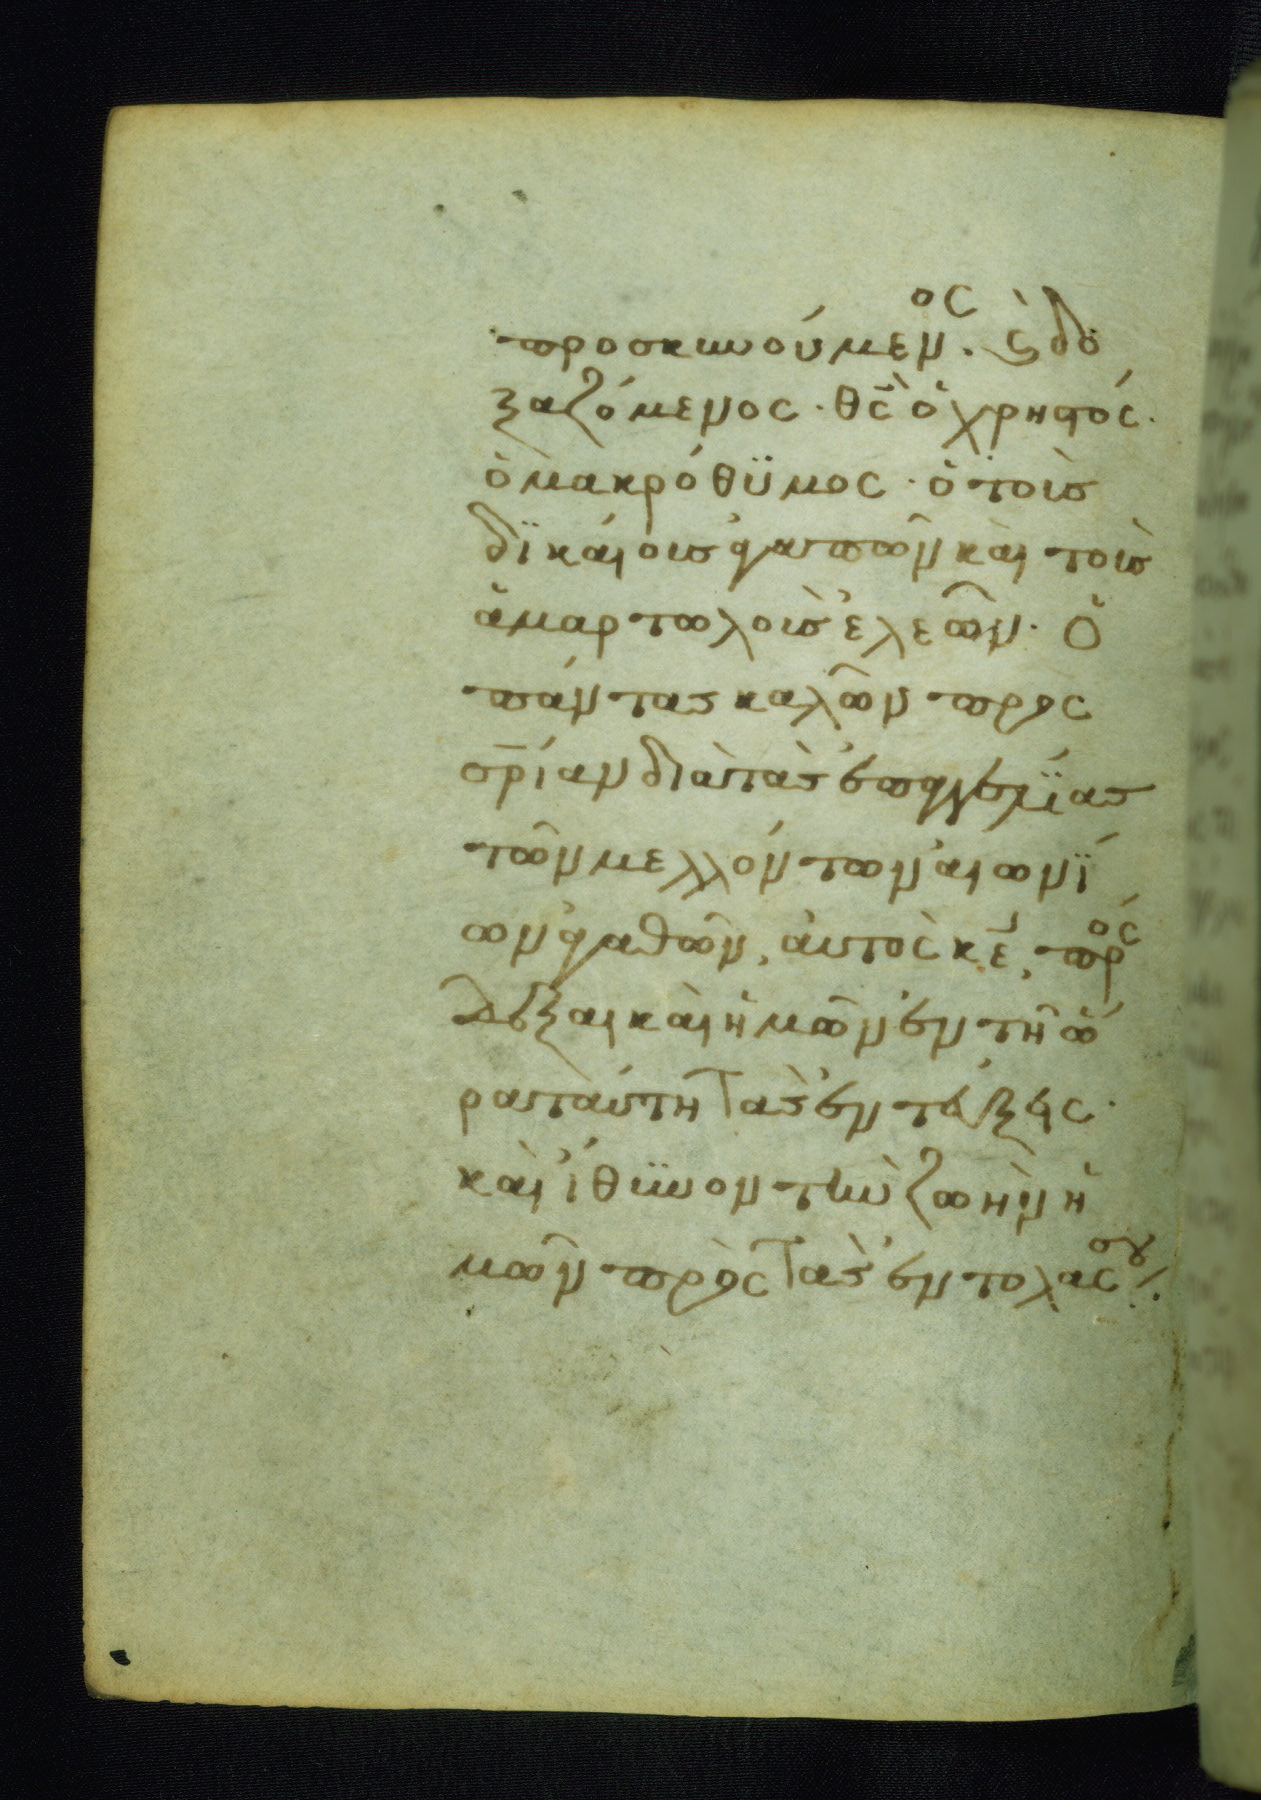 προσκυνούμενος. ϗ δο
ξαζόμενος · θς ὁ χρηστός ·
ὁ μακρόθϋμος · ὁ τοὺς
δϊκαίους ἀγαπῶν καὶ τοὺς
ἁμαρτωλοὺς ἐλεῶν · Ὁ
πάντας καλῶν πρὸς
σρίαν διὰ τὰς ἐπαγγελΐας
τῶν μελλόντων αἰωνΐ
ων ἀγαθῶν, αὐτὸς κε, πρόσ
δεξαι καὶ ἡμῶν ἐν τῆ ὥ
ρα ταύτη τὰς ἐντεύξεις ·
καὶ ἴθϋνον τὴν ζωὴν ἡ
μῶν πρὸς τὰς ἐντολάς σου